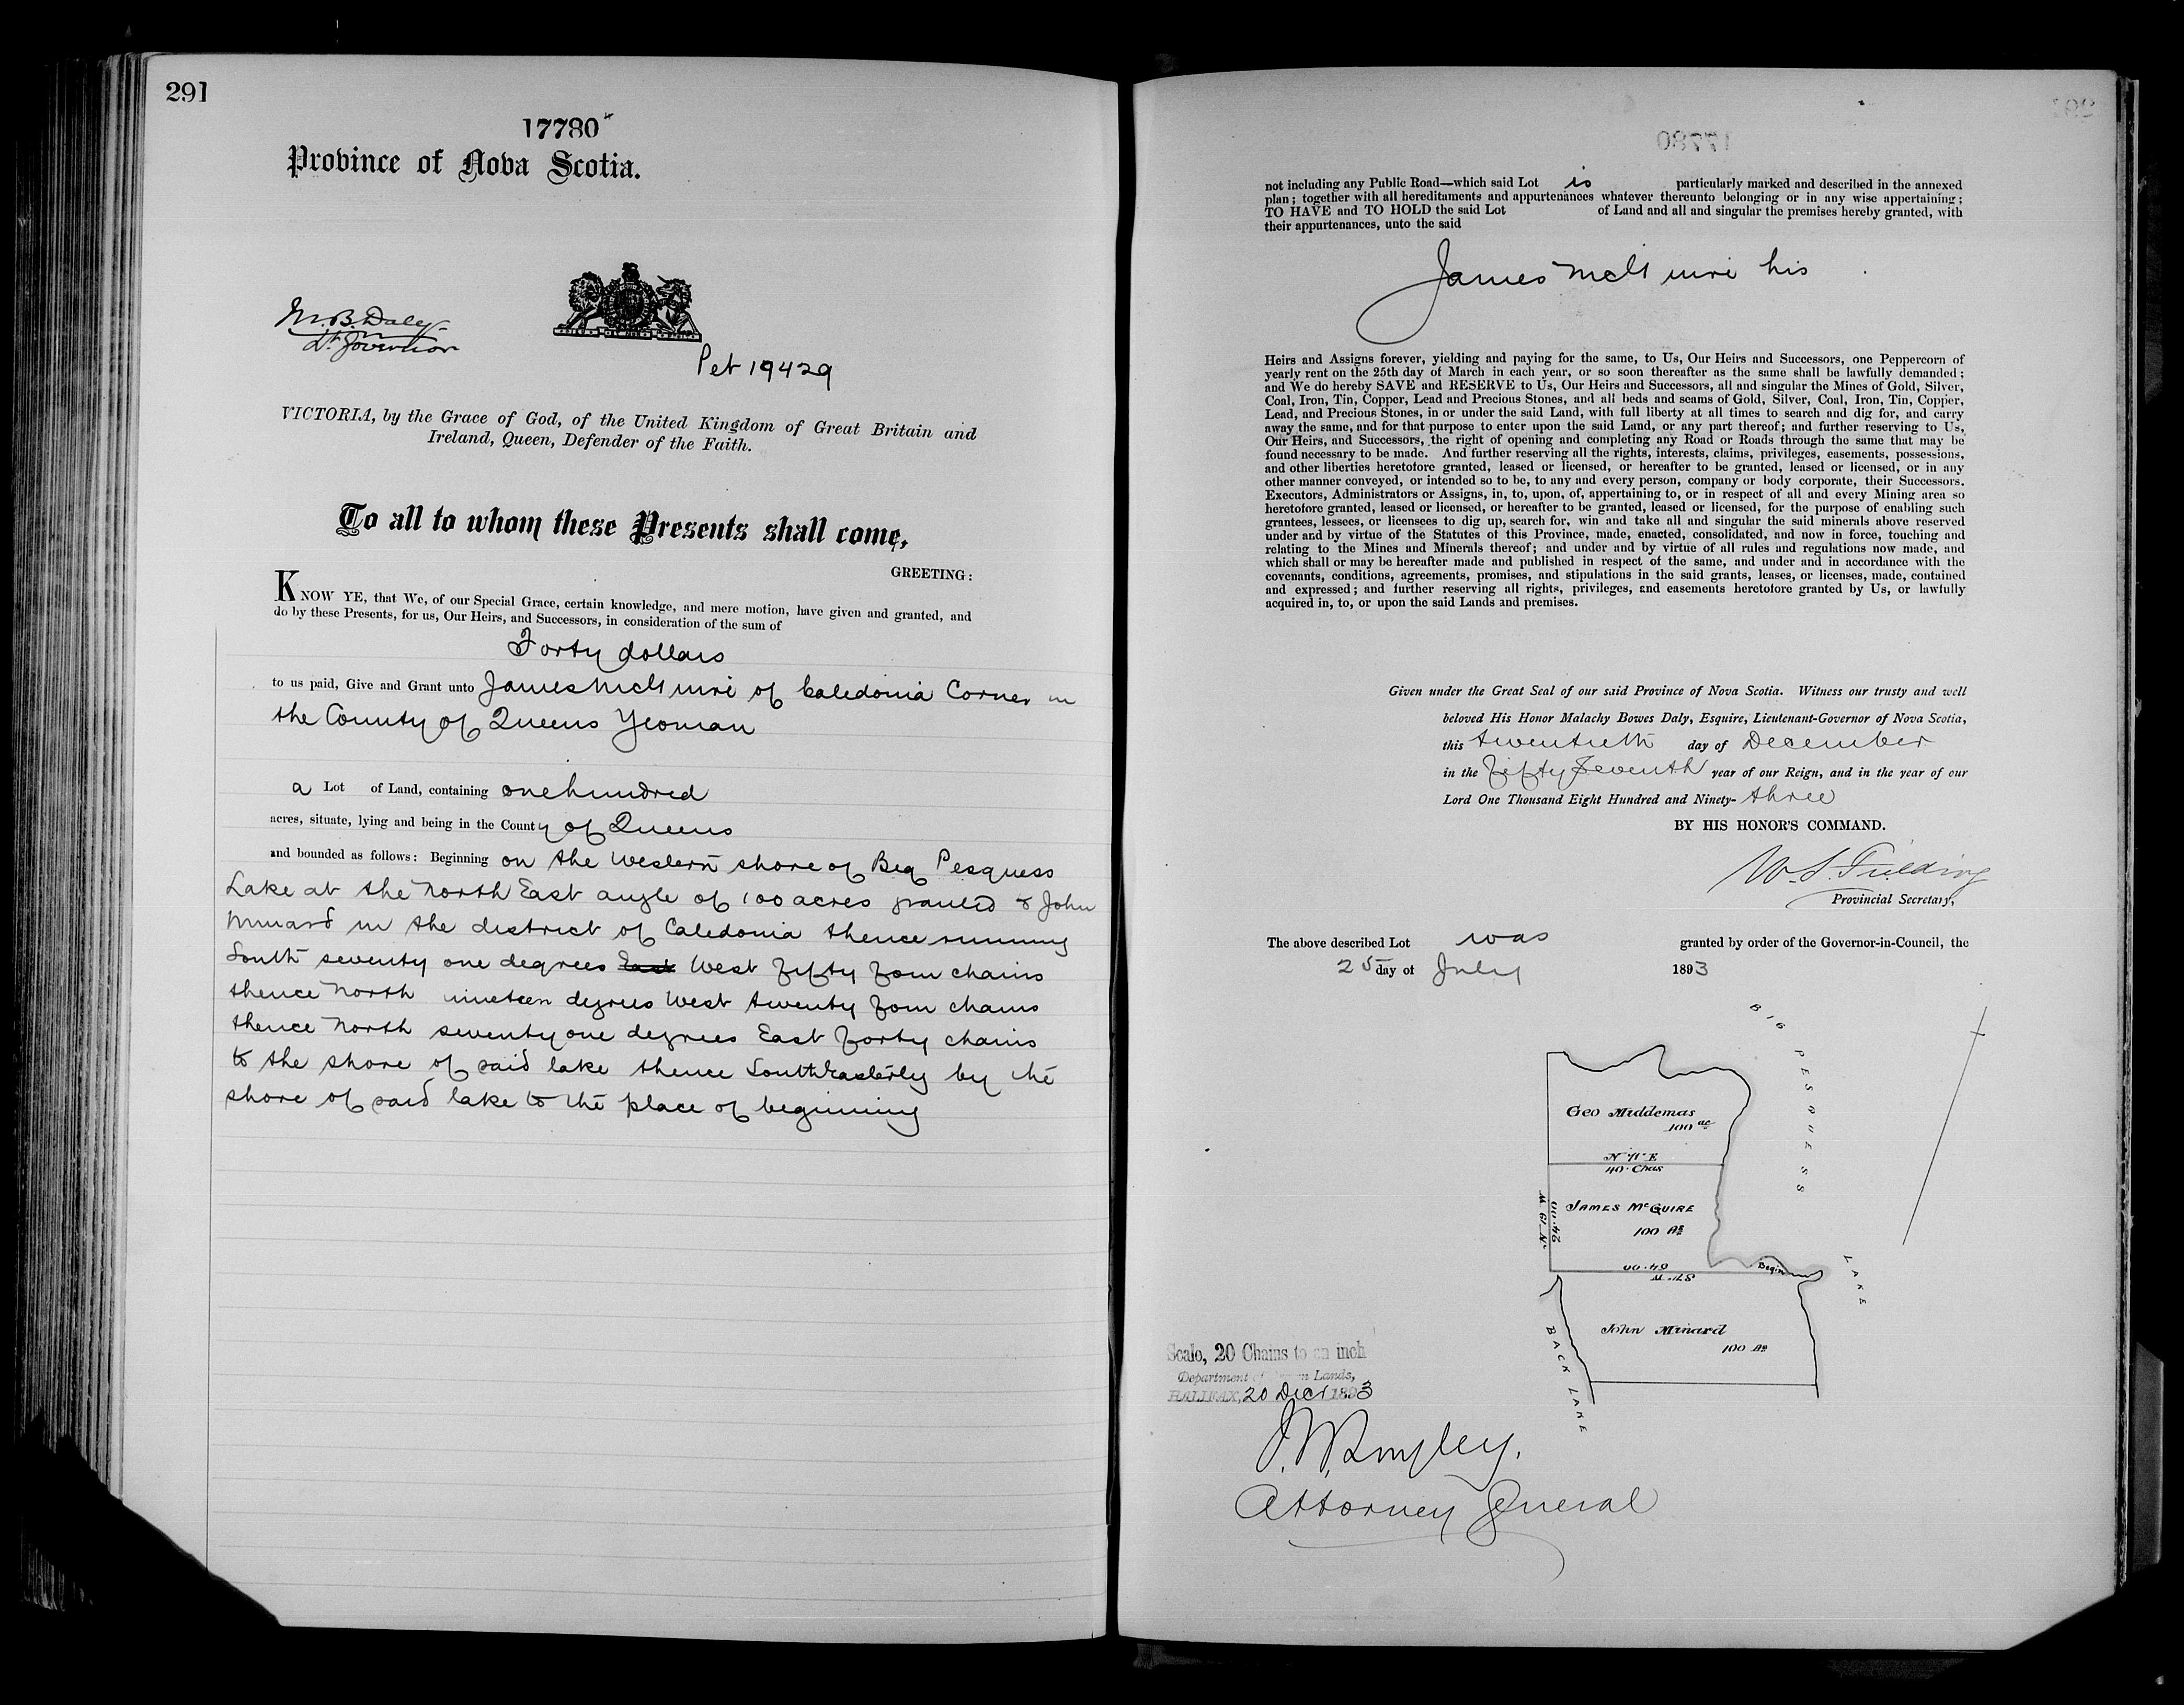 291
17780
Province of Nova Scotia.
M. B. Daly
Lt. Governor
Pet 19429
VICTORIA, by the Grace of God, of the United Kingdom of Great Britain and
Ireland, Queen, Defender of the Faith.
To all to whom these Presents shall come,
GREETING:
KNOW YE, that We, of our Special Grace, certain knowledge, and mere motion, have given and granted, and
do by these Presents, for us, Our Heirs, and Successors, in consideration of the sum of
Forty dollars
to us paid, Give and Grant unto James McGuire of Caledonia Corner in
the County of Queens Yeoman
a Lot of Land, containing one hundred
acres, situate, lying and being in the County of Queens
and bounded as follows: Beginning on the Western shore of Beg Pesquess
Lake at the North East angle of 100 acres granted to John
Minard in the district of Caledonia thence running
South seventy one degrees East West fifty four chains
thence North nineteen degrees West twenty four chains
thence North seventy one degrees East forty chains
to the shore of said lake thence South Easterly by the
shore of said lake to the place of beginning
17780
not including any Public Road—which said Lot is particularly marked and described in the annexed
plan; together with all hereditaments and appurtenances whatever thereunto belonging or in any wise appertaining;
TO HAVE and TO HOLD the said Lot of Land and all and singular the premises hereby granted, with
their appurtenances, unto the said
James McGuire his
Heirs and Assigns forever, yielding and paying for the same, to Us, Our Heirs and Successors, one Peppercorn of
yearly rent on the 25th day of March in each year, or so soon thereafter as the same shall be lawfully demanded;
and We do hereby SAVE and RESERVE to Us, Our Heirs and Successors, all and singular the Mines of Gold, Silver,
Coal, Iron, Tin, Copper, Lead and Precious Stones, and all beds and seams of Gold, Silver, Coal, Iron, Tin, Copper,
Lead, and Precious Stones, in or under the said Land, with full liberty at all times to search and dig for, and carry
away the same, and for that purpose to enter upon the said Land, or any part thereof; and further reserving to Us,
Our Heirs, and Successors, the right of opening and completing any Road or Roads through the same that may be
found necessary to be made. And further reserving all the rights, interests, claims, privileges, easements, possessions,
and other liberties heretofore granted, leased or licensed, or hereafter to be granted, leased or licensed, or in any
other manner conveyed, or intended so to be, to any and every person, company or body corporate, their Successors.
Executors, Administrators or Assigns, in, to, upon, of, appertaining to, or in respect of all and every Mining area so
heretofore granted, leased or licensed, or hereafter to be granted, leased or licensed, for the purpose of enabling such
grantees, lessees, or licensees to dig up, search for, win and take all and singular the said minerals above reserved
under and by virtue of the Statutes of this Province, made, enacted, consolidated, and now in force, touching and
relating to the Mines and Minerals thereof; and under and by virtue of all rules and regulations now made, and
which shall or may be hereafter made and published in respect of the same, and under and in accordance with the
covenants, conditions, agreements, promises, and stipulations in the said grants, leases, or licenses, made, contained
and expressed; and further reserving all rights, privileges, and easements heretofore granted by Us, or lawfully
acquired in, to, or upon the said Lands and premises.
Given under the Great Seal of our said Province of Nova Scotia. Witness our trusty and well
beloved His Honor Malachy Bowes Daly, Esquire, Lieutenant-Governor of Nova Scotia,
this twentieth day of December
in the Fifty Seventh year of our Reign, and in the year of our
Lord One Thousand Eight Hundred and Ninety-three
BY HIS HONOR'S COMMAND.
W. S. Fielding
Provincial Secretary,
The above described Lot was granted by order of the Governor-in-Council, the
25 day of July 1893
BIG PESQUESS LAKE
Geo Middemas
100 ac
N 71 E
40 Chas
JAMES McGUIRE
100 As
N 19 W
24.00
54.00
S 71 W
Begin
John Minard
100 As
BACK LAKE
Scale, 20 Chains to an inch
Department of Crown Lands,
HALIFAX, 20 Decr 1893
J. W. Longley.
Attorney General